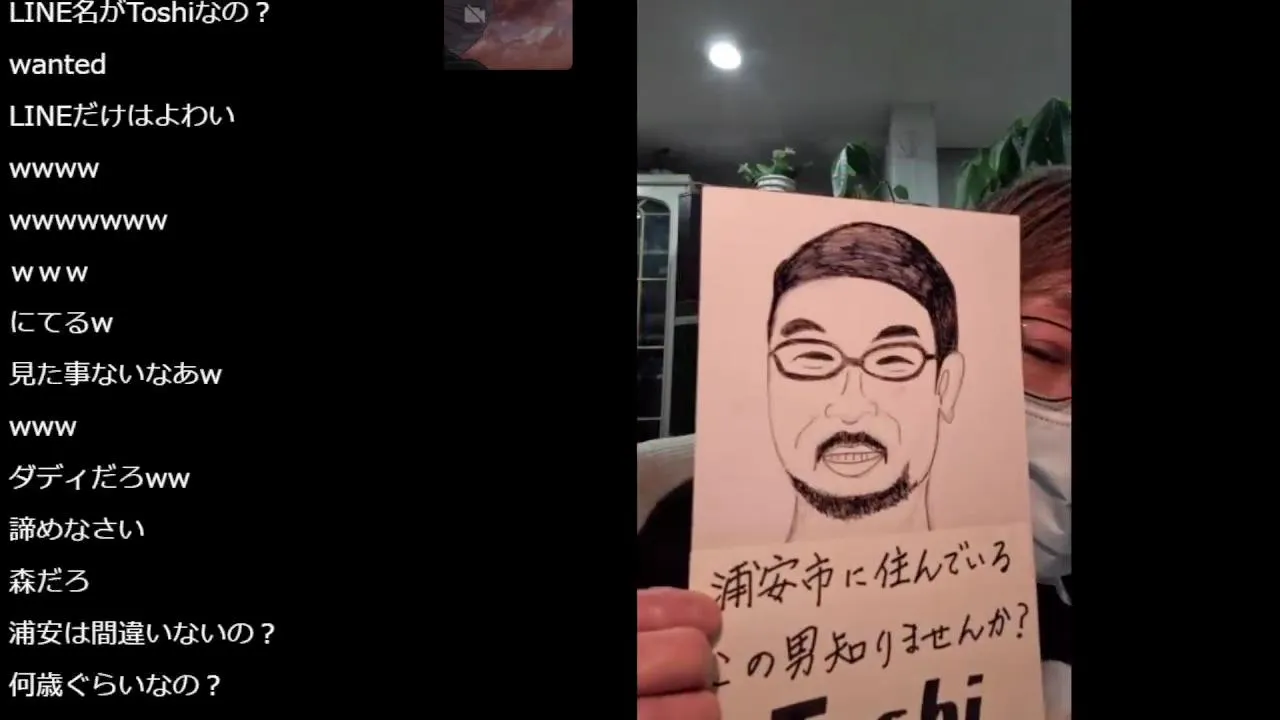 LINE名がToshiなの？
wanted
LINEだけはよわい
wwww
wwwwwww
ｗｗｗ
にてるw
見た事ないなあw
www
ダディだろww
諦めなさい
森だろ
浦安は間違いないの？
何歳ぐらいなの？
浦安市に住んでいる
この男知りませんか?
Toshi